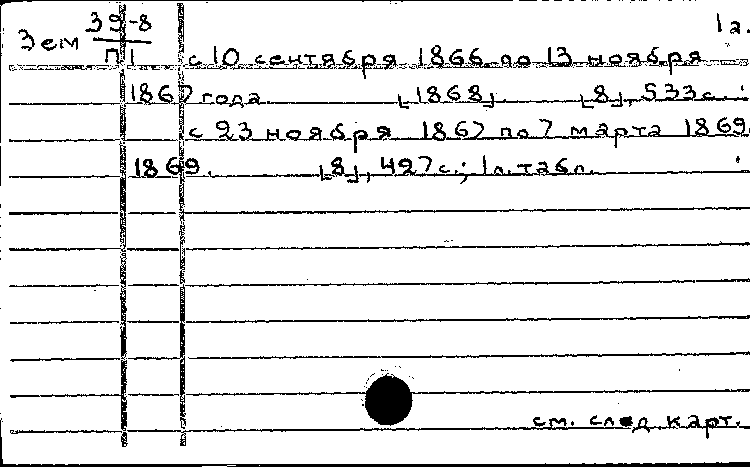 1а.
Зем 39-8
П 1 с 10 сентября 1866 по 13 ноября
1867 года [1868]. [8], 533 с.
с 23 ноября 1867 по 7 марта 1869.
1869. [8], 497 с.; 1 л. табл.
см. след. карт.